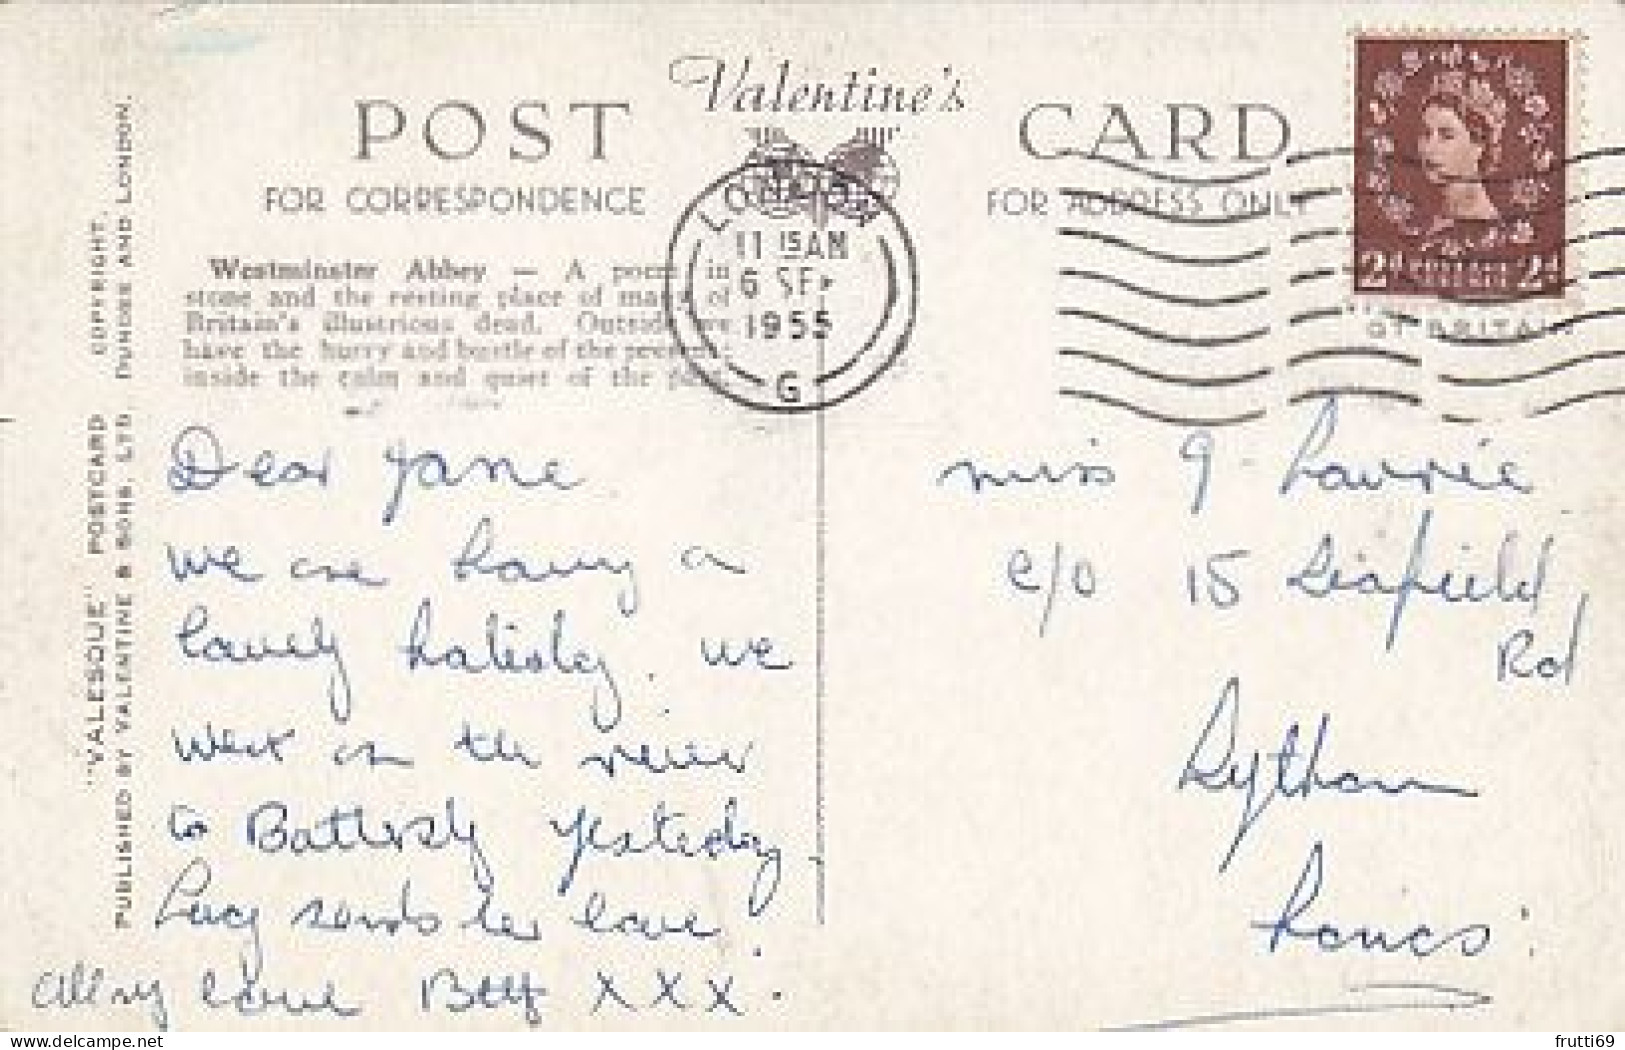 Valentine's
POST CARD
FOR CORRESPONDENCE
FOR ADDRESS ONLY
LONDON
11 15 AM
6 SEP
1955
G
2d 2d
OF BRITAIN
Westminster Abbey — A poem in
stone and the resting place of many of
Britain's illustrious dead. Outside we
have the hurry and bustle of the present;
inside the calm and quiet of the past.
"VALESQUE" POSTCARD COPYRIGHT.
PUBLISHED BY VALENTINE & SONS, LTD. DUNDEE AND LONDON.
Dear Jane
we are having a
lovely holiday. we
went on the river
to Battersly yesterday
Lucy sends her love.
All my love Betty XXX.
miss J. Lawrie
c/o 15 Seafield
Rd
Lytham
Lancs.
frutti69